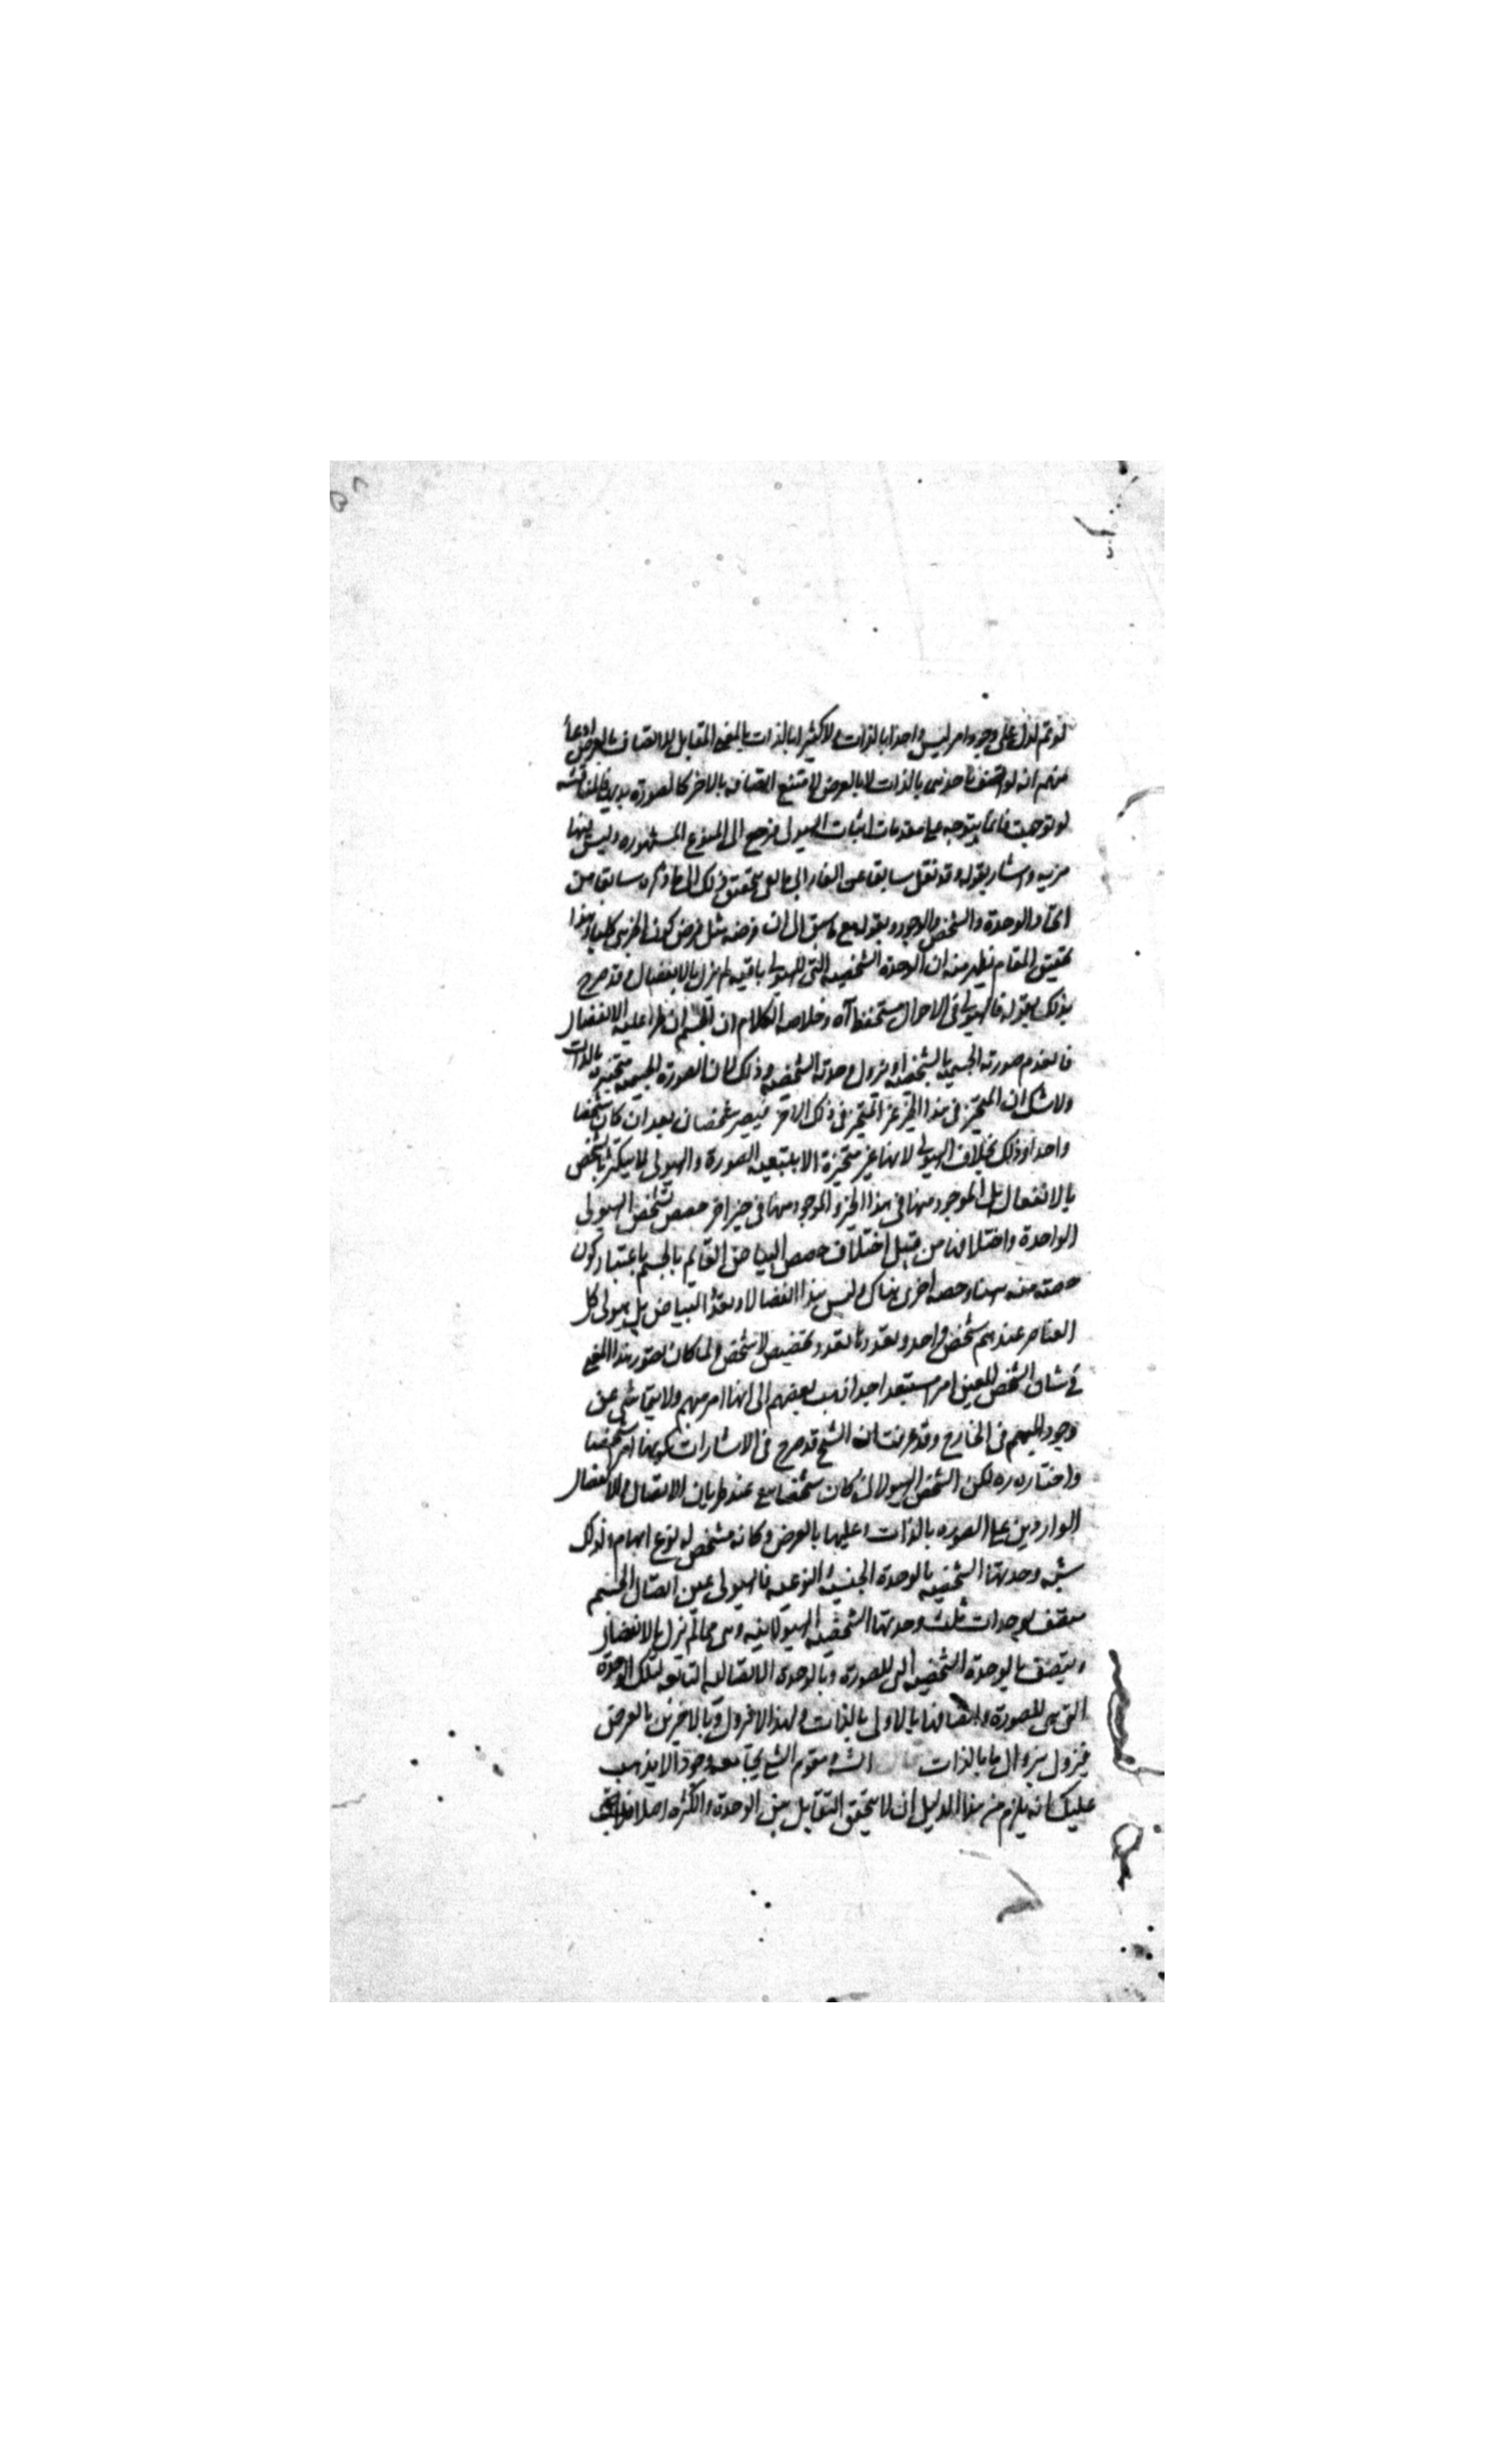 لو تم لدل على وجود امر ليس واحدا بالذات ولا كثيرا بالذات بالمعنى المقابل للاتصاف بالعرض
منهم انه لو اتصف باحدهما بالذات لا بالعرض لامتنع اتصافه بالاخر كالصورة
لو توجهت فانما يتوجه على مقدمات اثبات الهيولى فرجع الى المنوع المشهورة وليس فيها
مزيد واشار بقوله وقد نقل سابقا عن الفارابي تحقيق ذلك الى ما ذكره سابقا من
اتحاد الوحدة والتشخص والوجود وبقوله مع ما سبق الى ان فرضه مثل فرض كون الجزئي كليا وهذا
تحقيق المقام فظهر منه ان الوحدة الشخصية التي للهيولى باقية لم يزل بالانفصال وقد صرح
بذلك بقوله فالهيولى في الاحوال مستحفظة اه وخلاصة الكلام ان الجسم ان طرأ عليه الانفصال
فانعدم صورته الجسمية الشخصية ويزول وحدته الشخصية وذلك لان الصورة الجسمية متحيزة بالذات
ولا شك ان المتحيز في هذا الحيز غير المتحيز في ذلك الاخر فيصير شخصان بعد ان كان شخصا
واحدا وذلك بخلاف الهيولى لانها غير متحيزة الا بتبعية الصورة والهيولى لا يتكثر بالشخص
بالانفصال بل الموجود منها في هذا الحيز والموجود منها في حيز اخر حصص تشخص الهيولى
الواحدة واختلافها من قبيل اختلاف حصص البياض القايم بالجسم باعتبار كون
حصة منه هنا وحصة اخرى هناك وليس هذا انفصالا وتعدد البياض بل هيولى كل
العناصر عندهم شخص واحد وتعددها تعدد تخصيص لا شخص ولما كان تصور هذا المعنى
في شان الشخص المعين امر مستبعد جدا ذهب بعضهم الى انها امر مبهم ولا يتحاشى عن
وجود المبهم في الخارج وقد عرفت ان الشيخ قد صرح في الاشارات بكونها امر شخصيا
واختاره لكن الشخص الهيولى لما كان شخصا مع عند طريان الاتصال والانفصال
الواردين على الصورة بالذات وعليها بالعرض وكانه مشخص له نوع ابهام ولذلك
شبه وحدتها الشخصية بالوحدة الجنسية والنوعية فالهيولى عين اتصال الجسم
متصف بوحدات ثلث وحدتها الشخصية الهيولانية وهي مما لم تزل بالانفصال
ويتصف بالوحدة الشخصية التي للصورة وبالوحدة الاتصالية التابعة لتلك الوحدة
التي هي للصورة واتصافها بالاولى بالذات ولهذا لا يزول وبالاخرين بالعرض
فيزول بزوال ما بالذات قال الش ومقوم الشئ يجامعه وجودا لا يذهب
عليك انه يلزم من هذا الدليل ان لا يتحقق التقابل بين الوحدة والكثرة اصلا